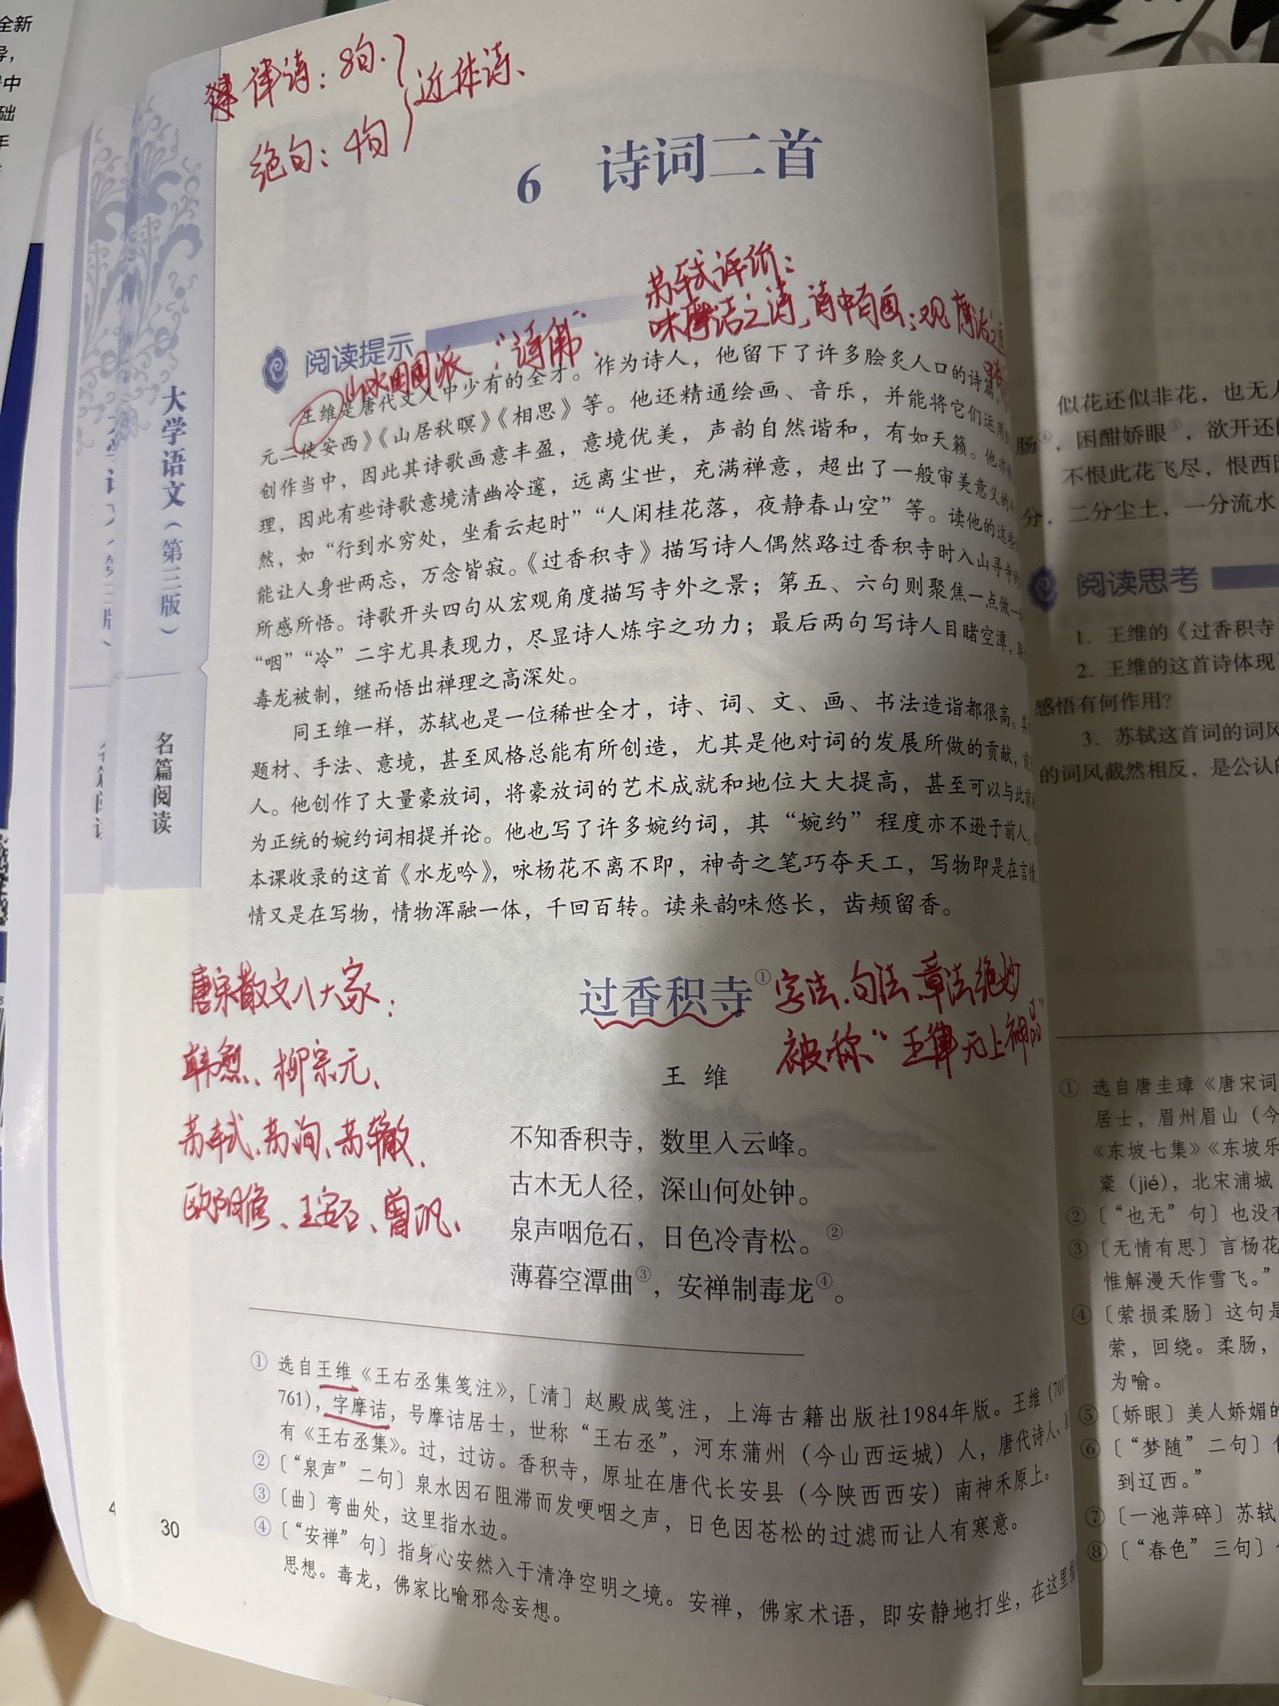 律诗：8句.
近体诗、
绝句：4句
6 诗词二首
苏轼评价：
味摩诘之诗，诗中有画；观摩诘之
阅读提示
山水田园派，“诗佛”.
王维是唐代文人中少有的全才。作为诗人，他留下了许多脍炙人口的诗篇
元二使安西》《山居秋暝》《相思》等。他还精通绘画、音乐，并能将它们运用
创作当中，因此其诗歌画意丰盈，意境优美，声韵自然谐和，有如天籁。他
理，因此有些诗歌意境清幽冷邃，远离尘世，充满禅意，超出了一般审美意义的
然，如“行到水穷处，坐看云起时”“人闲桂花落，夜静春山空”等。读他的这些
能让人身世两忘，万念皆寂。《过香积寺》描写诗人偶然路过香积寺时入山寻寺
所感所悟。诗歌开头四句从宏观角度描写寺外之景；第五、六句则聚焦一点做一
“咽”“冷”二字尤具表现力，尽显诗人炼字之功力；最后两句写诗人目睹空潭，
毒龙被制，继而悟出禅理之高深处。
同王维一样，苏轼也是一位稀世全才，诗、词、文、画、书法造诣都很高。
题材、手法、意境，甚至风格总能有所创造，尤其是他对词的发展所做的贡献，
人。他创作了大量豪放词，将豪放词的艺术成就和地位大大提高，甚至可以与此前
为正统的婉约词相提并论。他也写了许多婉约词，其“婉约”程度亦不逊于前人。
本课收录的这首《水龙吟》，咏杨花不离不即，神奇之笔巧夺天工，写物即是在言情，
情又是在写物，情物浑融一体，千回百转。读来韵味悠长，齿颊留香。
唐宋散文八大家：
韩愈、柳宗元、
苏轼、苏洵、苏辙、
欧阳修、王安石、曾巩、
过香积寺①
字法、句法、章法绝妙
被称“王律无上神品”
王 维
不知香积寺，数里入云峰。
古木无人径，深山何处钟。
泉声咽危石，日色冷青松。②
薄暮空潭曲③，安禅制毒龙④。
① 选自王维《王右丞集笺注》，[清] 赵殿成笺注，上海古籍出版社1984年版。王维（701
761），字摩诘，号摩诘居士，世称“王右丞”，河东蒲州（今山西运城）人，唐代诗人，
有《王右丞集》。过，过访。香积寺，原址在唐代长安县（今陕西西安）南神禾原上。
② 〔“泉声”二句〕泉水因石阻滞而发哽咽之声，日色因苍松的过滤而让人有寒意。
③ 〔曲〕弯曲处，这里指水边。
④ 〔“安禅”句〕指身心安然入于清净空明之境。安禅，佛家术语，即安静地打坐，在这里
思想。毒龙，佛家比喻邪念妄想。
30
大学语文（第三版）
名篇阅读
似花还似非花，也无人
肠④，困酣娇眼⑤，欲开还
不恨此花飞尽，恨西
分，二分尘土，一分流水
阅读思考
1. 王维的《过香积寺
2. 王维的这首诗体现
感悟有何作用？
3. 苏轼这首词的词风
的词风截然相反，是公认的
① 选自唐圭璋《唐宋词
居士，眉州眉山（今
《东坡七集》《东坡乐
楶（jié），北宋浦城
② 〔“也无”句〕也没有
③ 〔无情有思〕言杨花
惟解漫天作雪飞。”
④ 〔萦损柔肠〕这句是
萦，回绕。柔肠，
为喻。
⑤ 〔娇眼〕美人娇媚的
⑥ 〔“梦随”二句〕
到辽西。”
⑦ 〔一池萍碎〕苏轼
⑧ 〔“春色”三句〕